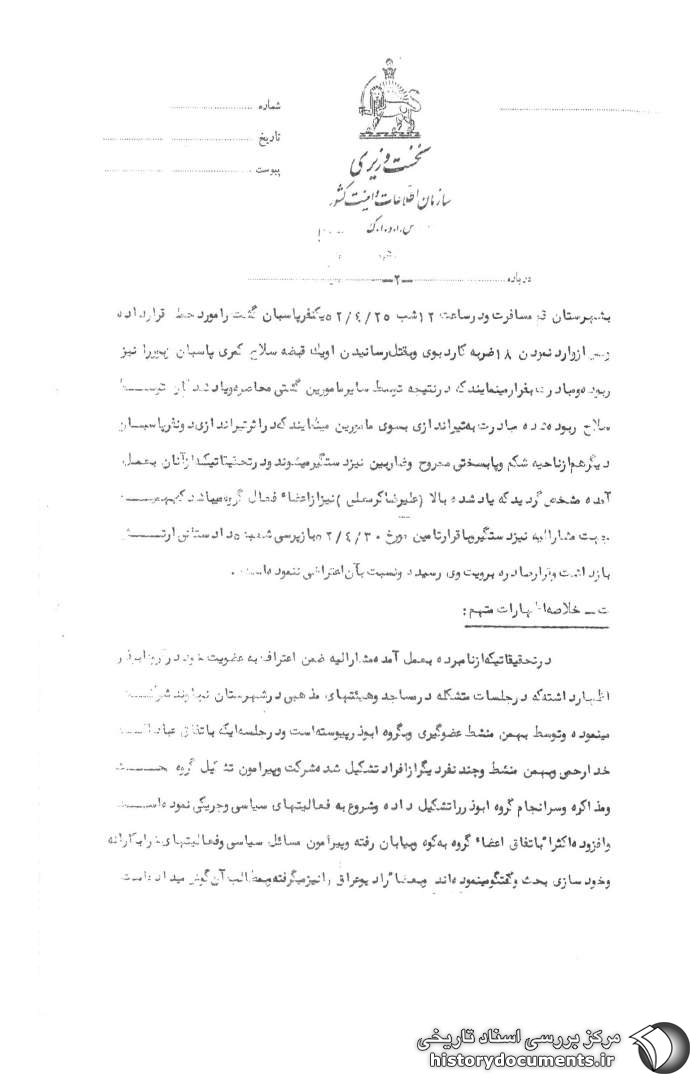 شماره
تاریخ
پیوست
نخست وزیری
سازمان اطلاعات و امنیت کشور
س.ا.و.ا.ک
درباره
ـ۲ـ
بشهرستان قم مسافرت ودرساعت ۱۲ شب ۵۲/۴/۲۵ یکنفرپاسبان گشت رامورد حمله قرارداده
وپس ازوارد نمودن ۱۸ ضربه کارد بوی وبقتل رسانیدن اویک قبضه سلاح کمری پاسبان مزبوررا نیز
ربوده ومبادرت بفرارمینمایند که درنتیجه توسط سایرمامورین گشتی محاصره ویاد شدگان توسط
سلاح ربوده شده مبادرت به تیراندازی بسوی مامورین مینمایند که دراثرتیراندازی دونفرپاسبان
دیگرهم ازناحیه شکم وپابسختی مجروح وضاربین نیزدستگیرمیشوند ودرتحقیقاتیکه ازآنان بعمل
آمده مشخص گردید که یاد شده بالا (علیرضا کرمعلی) نیزازاعضاء فعال گروه میباشد که بهمین
جهت مشارالیه نیزدستگیروباقرارتامین مورخ ۵۲/۴/۳۰ بازپرسی شعبه ۵ دادستانی ارتش
بازداشت وقرارصادره برویت وی رسیده ونسبت بآن اعتراضی ننموده است.
ت ـ خلاصه اظهارات متهم:
درتحقیقاتیکه ازنامبرده بعمل آمده مشارالیه ضمن اعتراف به عضویت خود درگروه ابوذر
اظهارداشته که درجلسات متشکله درمساجد وهیئتهای مذهبی درشهرستان نهاوند شرکت
مینموده وتوسط بهمن منشط عضوگیری وبگروه ابوذرپیوسته است ودرجلسه ایکه باتفاق عباداله
خدارحمی وبهمن منشط وچند نفردیگرازافراد تشکیل شده شرکت وپیرامون تشکیل گروه بحث
ومذاکره وسرانجام گروه ابوذرراتشکیل داده وشروع به فعالیتهای سیاسی وچریکی نموده است
وافزوده اکثراً باتفاق اعضاء گروه به کوه وبیابان رفته وپیرامون مسائل سیاسی وفعالیتهای خرابکارانه
وخود سازی بحث وگفتگومینموده اند وبعضاً رادیوعراق رانیزمیگرفته وبمطالب آن گوش میداده است
مرکز بررسی اسناد تاریخی
historydocuments.ir